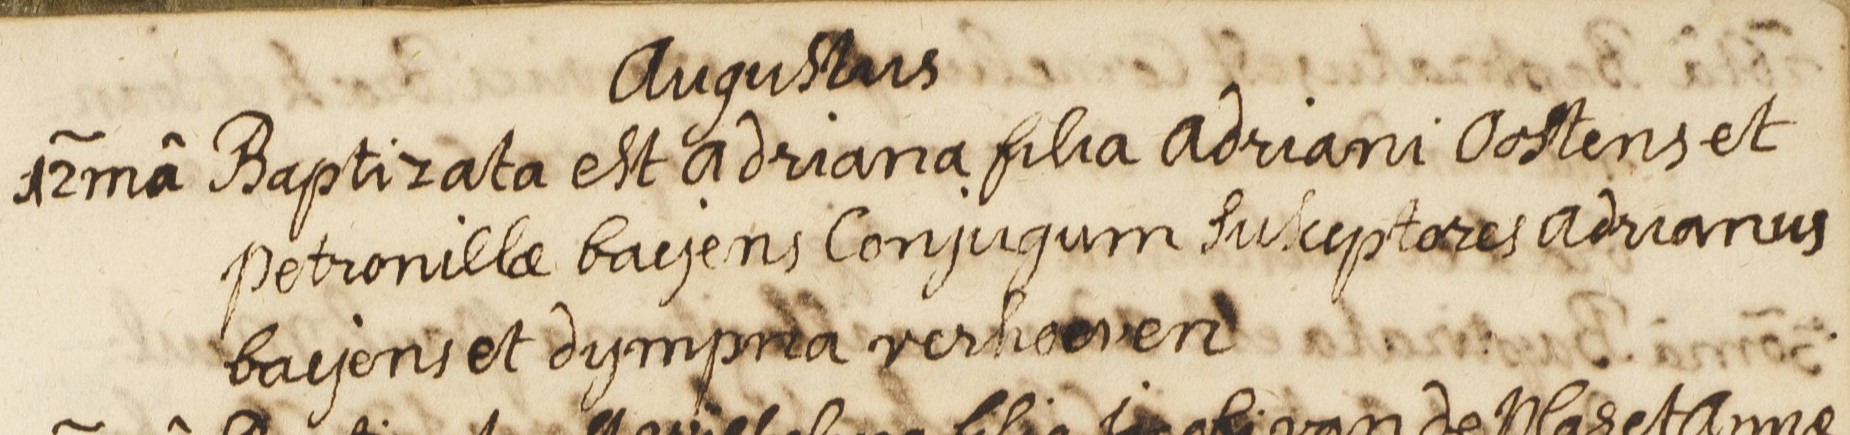 Augustus
12mâ Baptizata est Adriana filia Adriani Oostens et
Petronillæ baejens Conjugum Susceptores Adrianus
baejens et dympna verhoeven
Baptizata est filia van de Plas et Annæ